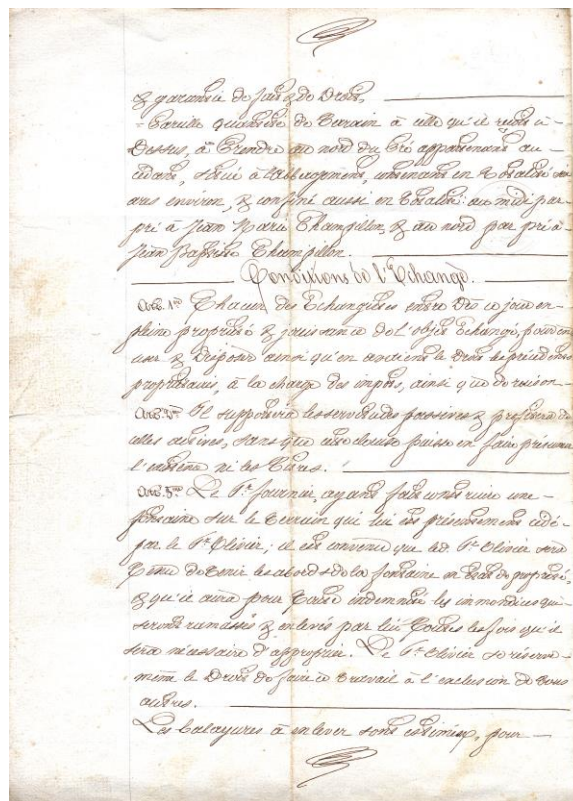 & garantie de fait & de Droit,
= Pareille quantité de terrain à celle qu'il reçoit ci-
Dessus, à Prendre au nord du Pré appartenant au
cédant, situé à contenant en Totalité
ares environ, & confiné aussi en Totalité: au midi par
pré à Jean Marie Champilon, & au nord par pré à
Jean Baptiste Champilon.
Conditions de l'Echange.
Art. 1er Chacun des Echangistes entre Dès ce jour en
pleine propriété & jouissance de l'objet Echangé, pour en
user & Disposer ainsi qu'en avaient le Droit les précédents
propriétaires, à la charge des impôts, ainsi que de raison.
Art. 2me Il supportera les servitudes passives & profitera de
celles actives, sans que cette clause puisse en faire présumer
l'existence ni les Titres.
Art. 3me Le Sr. fournier, ayant fait construire une
fontaine sur le terrain qui lui est présentement cédé
par le Sr. Olivier, il est convenu que led. Sr. Olivier sera
Tenu de Tenir les abords de la fontaine en Etat de propreté,
& qu'il aura pour Toute indemnité les immondices qui
seront ramassés & enlevés par lui Toutes les fois qu'il
sera nécessaire d'approprier. Le Sr. Olivier se réserve
même le Droit de faire ce Travail à l'exclusion de Tous
autres.
Les balayures à enlever sont estimées, pour